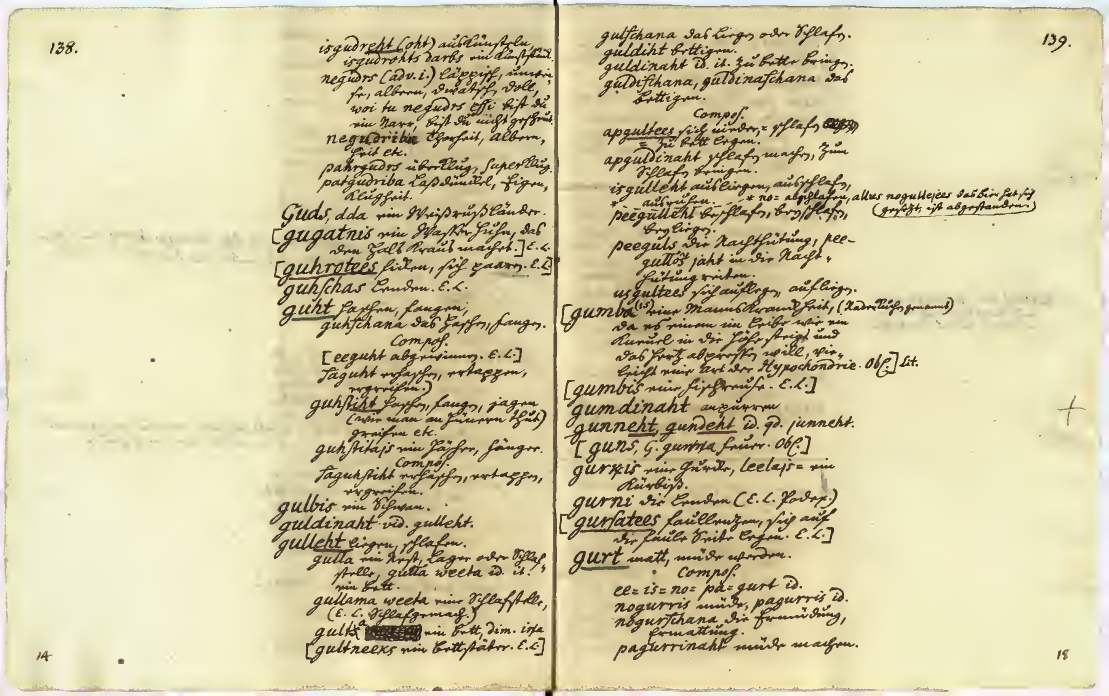 138.
isgudreht (oht) auskünsteln
isgudrohts darbs ein Kunststück
negudrs (adv. i.) läppisch, unwei-
se, albern, dwatsch, doll,
woi tu negudrs essi bist du
ein Narr, bist du nicht gescheut
negudriba Thorheit, Albern,
heit etc.
pahrgudrs überklug, superklug.
patgudriba Laßdünkel, Eigen,
Klugheit.
Guds, dda ein Weißrußländer.
[gugatnis ein Wasser Huhn, das
den Hals kraus machet.] E. L.
[guhrotees hiden, sich paaren. E. L.]
guhschas Lenden. E. L.
guht haschen, fangen,
guhschana das Haschen, fangen.
Compos.
[eeguht abgewinnen. E. L.]
saguht erhaschen, ertappen,
ergreifen.)
guhstiht haschen, fangen, jagen
(wie man an Hünern thut)
greifen etc.
guhstitajs ein Häscher, fänger.
Compos.
saguhstiht erhaschen, ertappen,
ergreifen.
gulbis ein Schwan.
guldinaht vid. gulleht.
gulleht liegen, schlafen.
gulla ein Nest, Lager oder Schlaf
stelle, gulla weeta id. it.
ein Bett.
gullama weeta eine Schlafstelle,
(E. L. Schlafgemach.)
gulta ein Bett, dim. iņa
[gultneeks ein Bettstäter. E. L.]
14
139.
gulschana das Liegen oder Schlafen.
guldiht bettigen.
guldinaht id. it. zu bette bringen.
guldischana, guldinaschana das
bettigen.
Compos.
apgultees sich nieder = schlafen
= zu bett legen.
apguldinaht schlafen machen, zum
Schlafen bringen.
isgulleht ausliegen, ausschlafen,
ausruhen. no= abschlafen, allus nogullejees das Bier hat sich
(gesetzt, ist abgestanden.)
peegulleht beschlafen, beyschlafen,
beyliegen.
peeguls die Nachthütung, pee-
gullôs jaht in die Nacht,
hütung reiten.
usgultees sich auflegen, aufliegen.
[gumba (is) eine Manns Kranckheit,
da es einem im Leibe wie ein
Kneuel in die Höhe steigt und
das Hertz abpressen will, vie-
leicht eine Art der Hypochondrie. Obs.] Lit.
[gumbis eine fischreuse. E. L.]
gumdinaht anpurren
gunneht, gundeht id. qd. junneht.
[guns, G. gunna feuer. Obs.]
gurķis eine Gurcke, leelajs = ein
Kürbiß.
gurni die Lenden (E. L. Podex.)
[gursatees faullentzen, sich auf
die faule Seite legen. E. L.]
gurt matt, müde werden.
Compos.
ee= is= no= pa= gurt id.
nogurris müde, pagurris id.
nogurschana die Ermüdung,
Ermattung.
pagurrinaht müde machen.
18